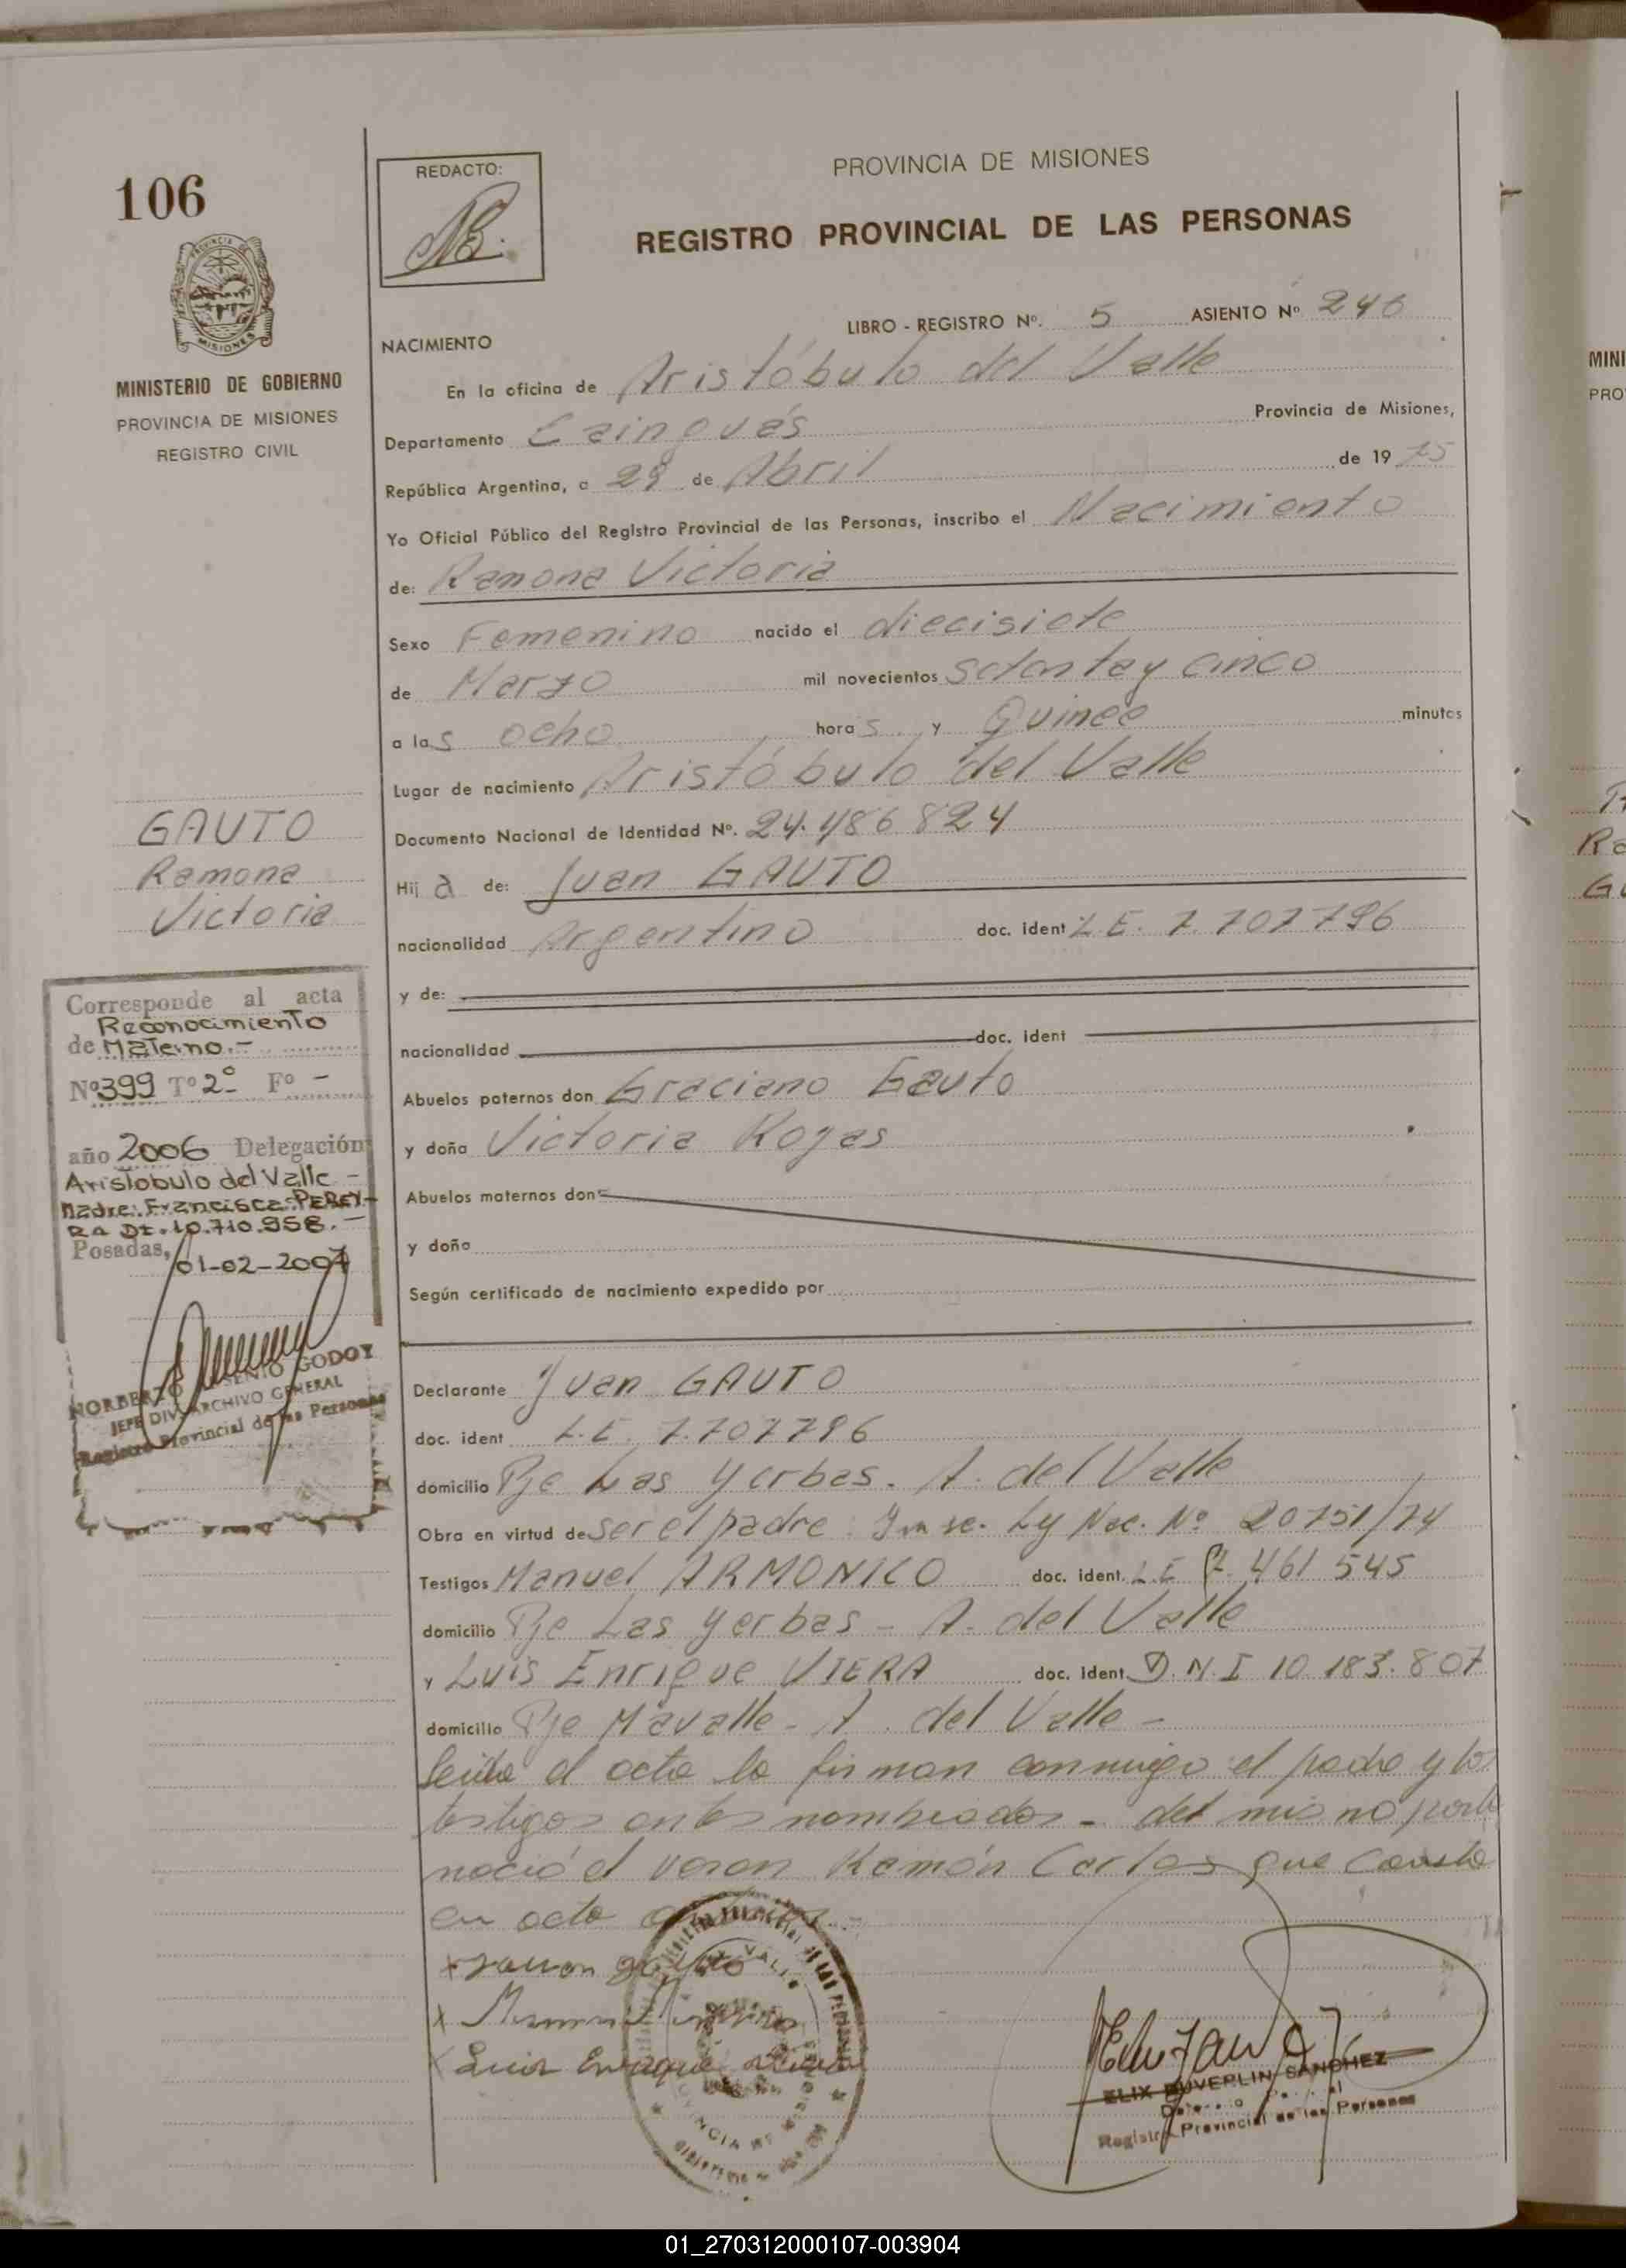 106
REDACTO:
PROVINCIA DE MISIONES
REGISTRO PROVINCIAL DE LAS PERSONAS
MISIONES
MINISTERIO DE GOBIERNO
PROVINCIA DE MISIONES
REGISTRO CIVIL
LIBRO - REGISTRO Nº. 5 ASIENTO Nº 246
NACIMIENTO
En la oficina de Aristóbulo del Valle
Departamento Cainguás Provincia de Misiones,
República Argentina, a 29 de Abril de 19 75
Yo Oficial Público del Registro Provincial de las Personas, inscribo el Nacimiento
de: Ramona Victoria
Sexo Femenino nacido el diecisiete
de Marzo mil novecientos setenta y cinco
a las ocho horas y Quince minutos
Lugar de nacimiento Aristóbulo del Valle
Documento Nacional de Identidad Nº. 24.486.824
Hija de: Juan GAUTO
nacionalidad Argentino doc. ident L.E. 7.707796
y de:
nacionalidad doc. ident
Abuelos paternos don Graciano Gauto
y doña Victoria Rojas
Abuelos maternos don
y doña
Según certificado de nacimiento expedido por
Declarante Juan GAUTO
doc. ident L.E. 7.707796
domicilio Pje Las Yerbas. A. del Valle
Obra en virtud de ser el padre. Insc. Ley Nac. Nº 20751/74
Testigos Manuel ARMONICO doc. ident. L.E 461 545
domicilio Pje Las Yerbas - A. del Valle
y Luis Enrique VIERA doc. ident. D.N.I 10.183.807
domicilio Pje Mavalle - A. del Valle -
leida el acta la firman conmigo el padre y los
testigos antes nombrados - del mismo parto
nació el varon Ramón Carlos que consta
en acta
x Juan gauto
x Manuel
x Luis Enrique Viera
GAUTO
Ramona
Victoria
Corresponde al acta
Reconocimiento
de Materno.-
Nº 399 Tº 2º Fº -
año 2006 Delegación
Aristobulo del Valle -
Madre: Francisca PEREY-
RA DI. 10.710.958.-
Posadas, 01-02-2007
NORBERTO GODOY
JEFE DIV. ARCHIVO GENERAL
Registro Provincial de las Personas
SANCHEZ
Registro Provincial de las Personas
MINI
PRO
01_270312000107-003904